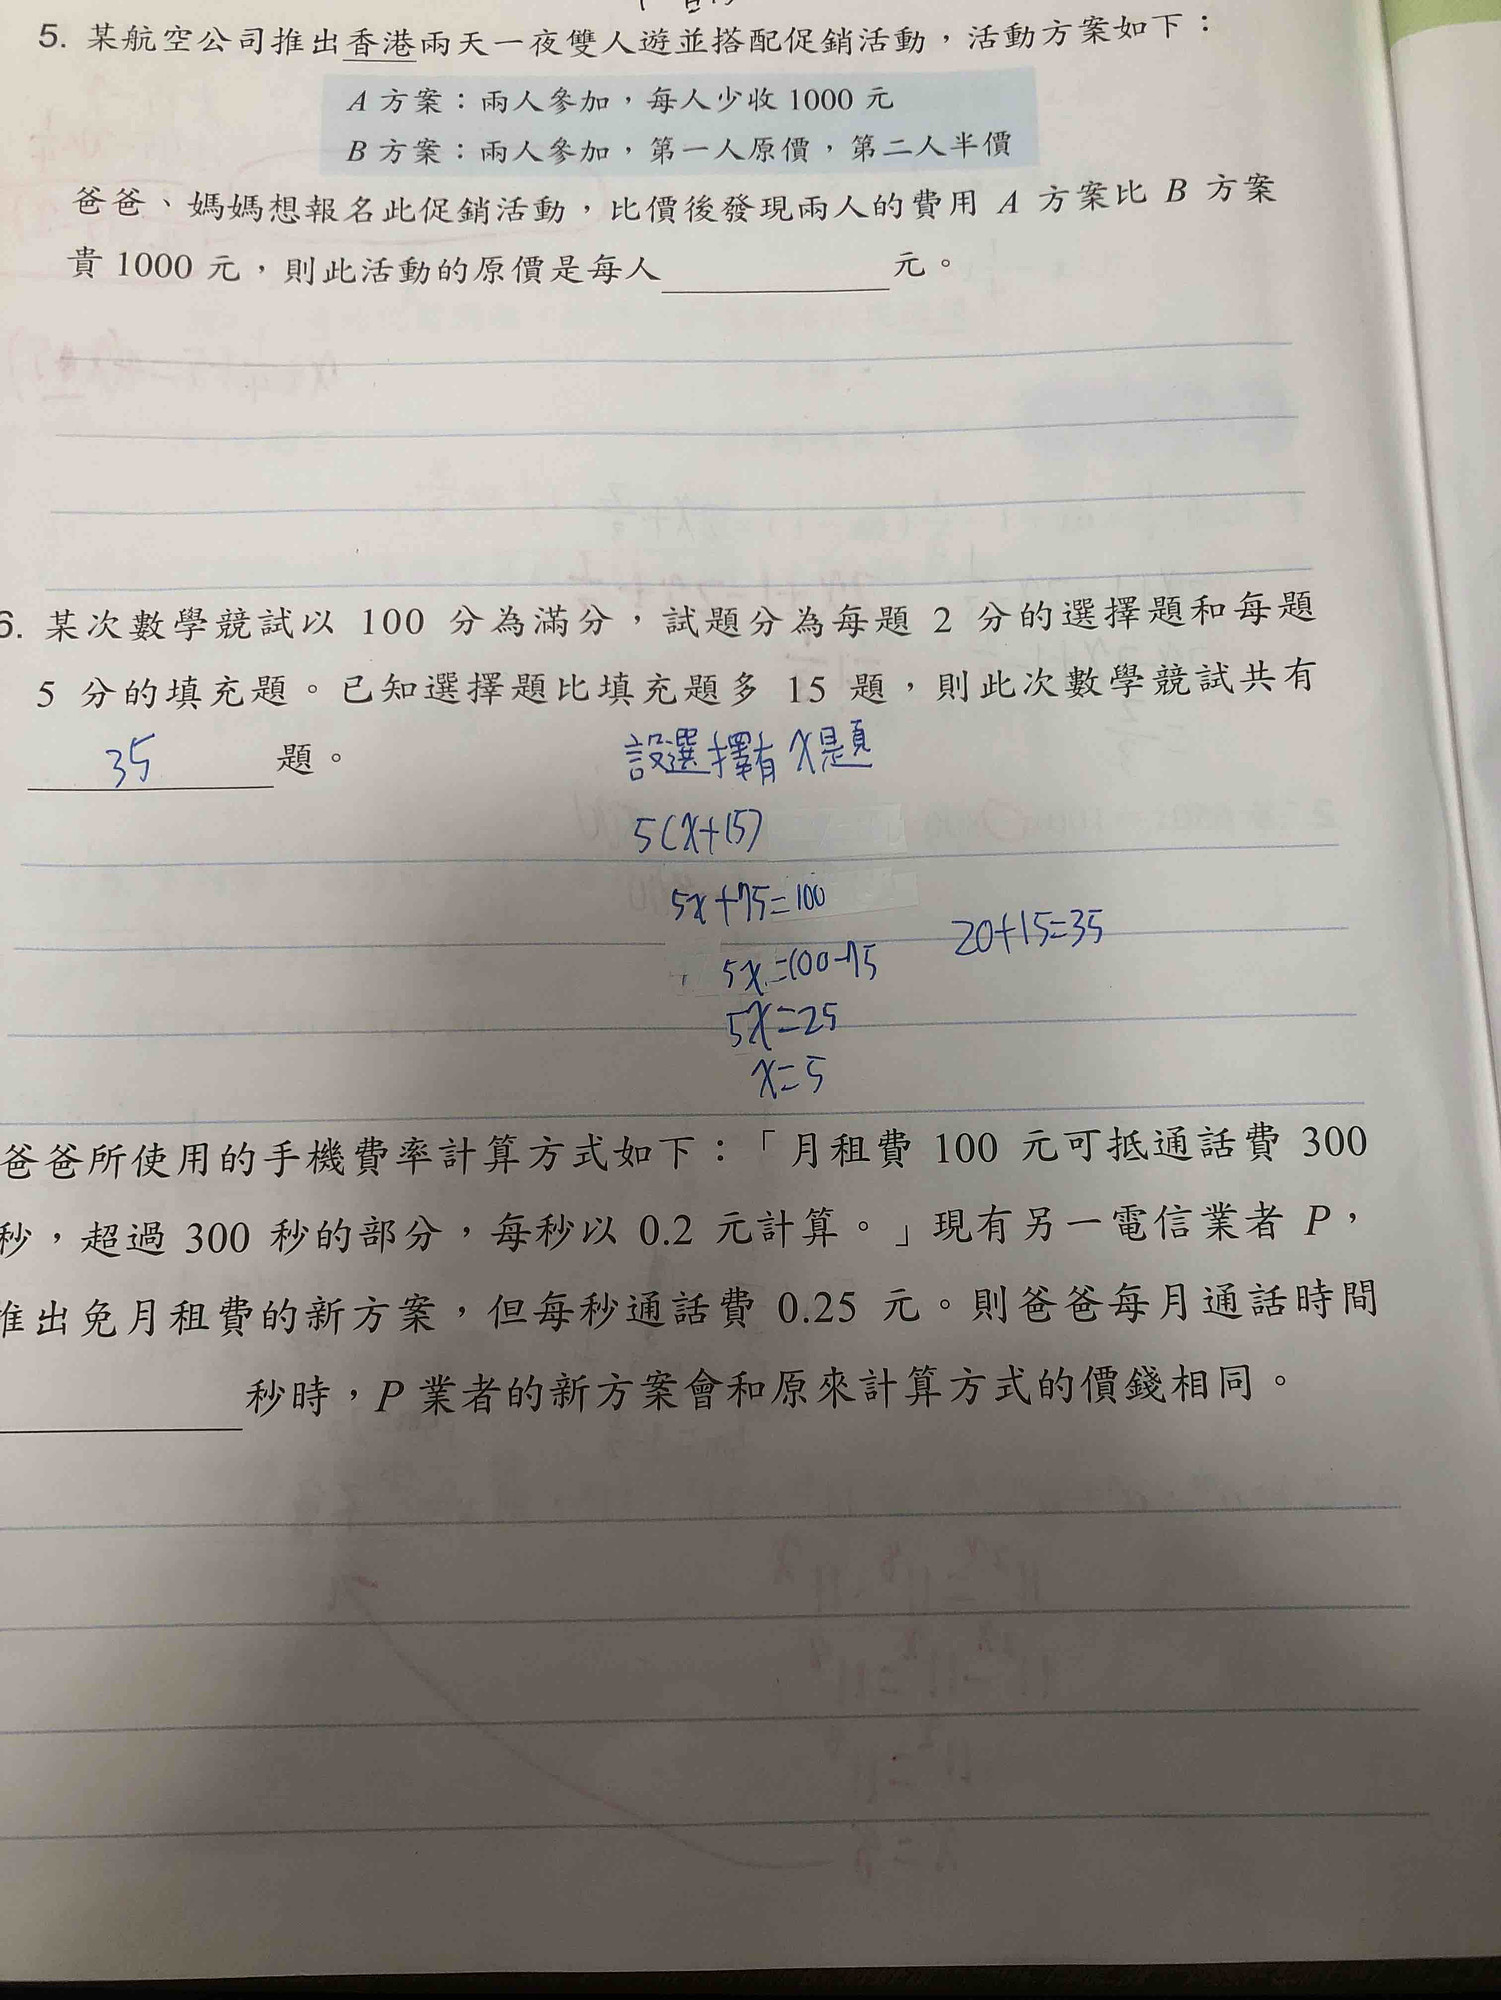 5. 某航空公司推出香港兩天一夜雙人遊並搭配促銷活動，活動方案如下：
A 方案：兩人參加，每人少收 1000 元
B 方案：兩人參加，第一人原價，第二人半價
爸爸、媽媽想報名此促銷活動，比價後發現兩人的費用 A 方案比 B 方案
貴 1000 元，則此活動的原價是每人 元。
6. 某次數學競試以 100 分為滿分，試題分為每題 2 分的選擇題和每題
5 分的填充題。已知選擇題比填充題多 15 題，則此次數學競試共有
35 題。
設選擇有 x題
5(x+15)
5x+75=100
5x=100-75
20+15=35
5x=25
x=5
爸爸所使用的手機費率計算方式如下：「月租費 100 元可抵通話費 300
秒，超過 300 秒的部分，每秒以 0.2 元計算。」現有另一電信業者 P，
推出免月租費的新方案，但每秒通話費 0.25 元。則爸爸每月通話時間
秒時，P 業者的新方案會和原來計算方式的價錢相同。